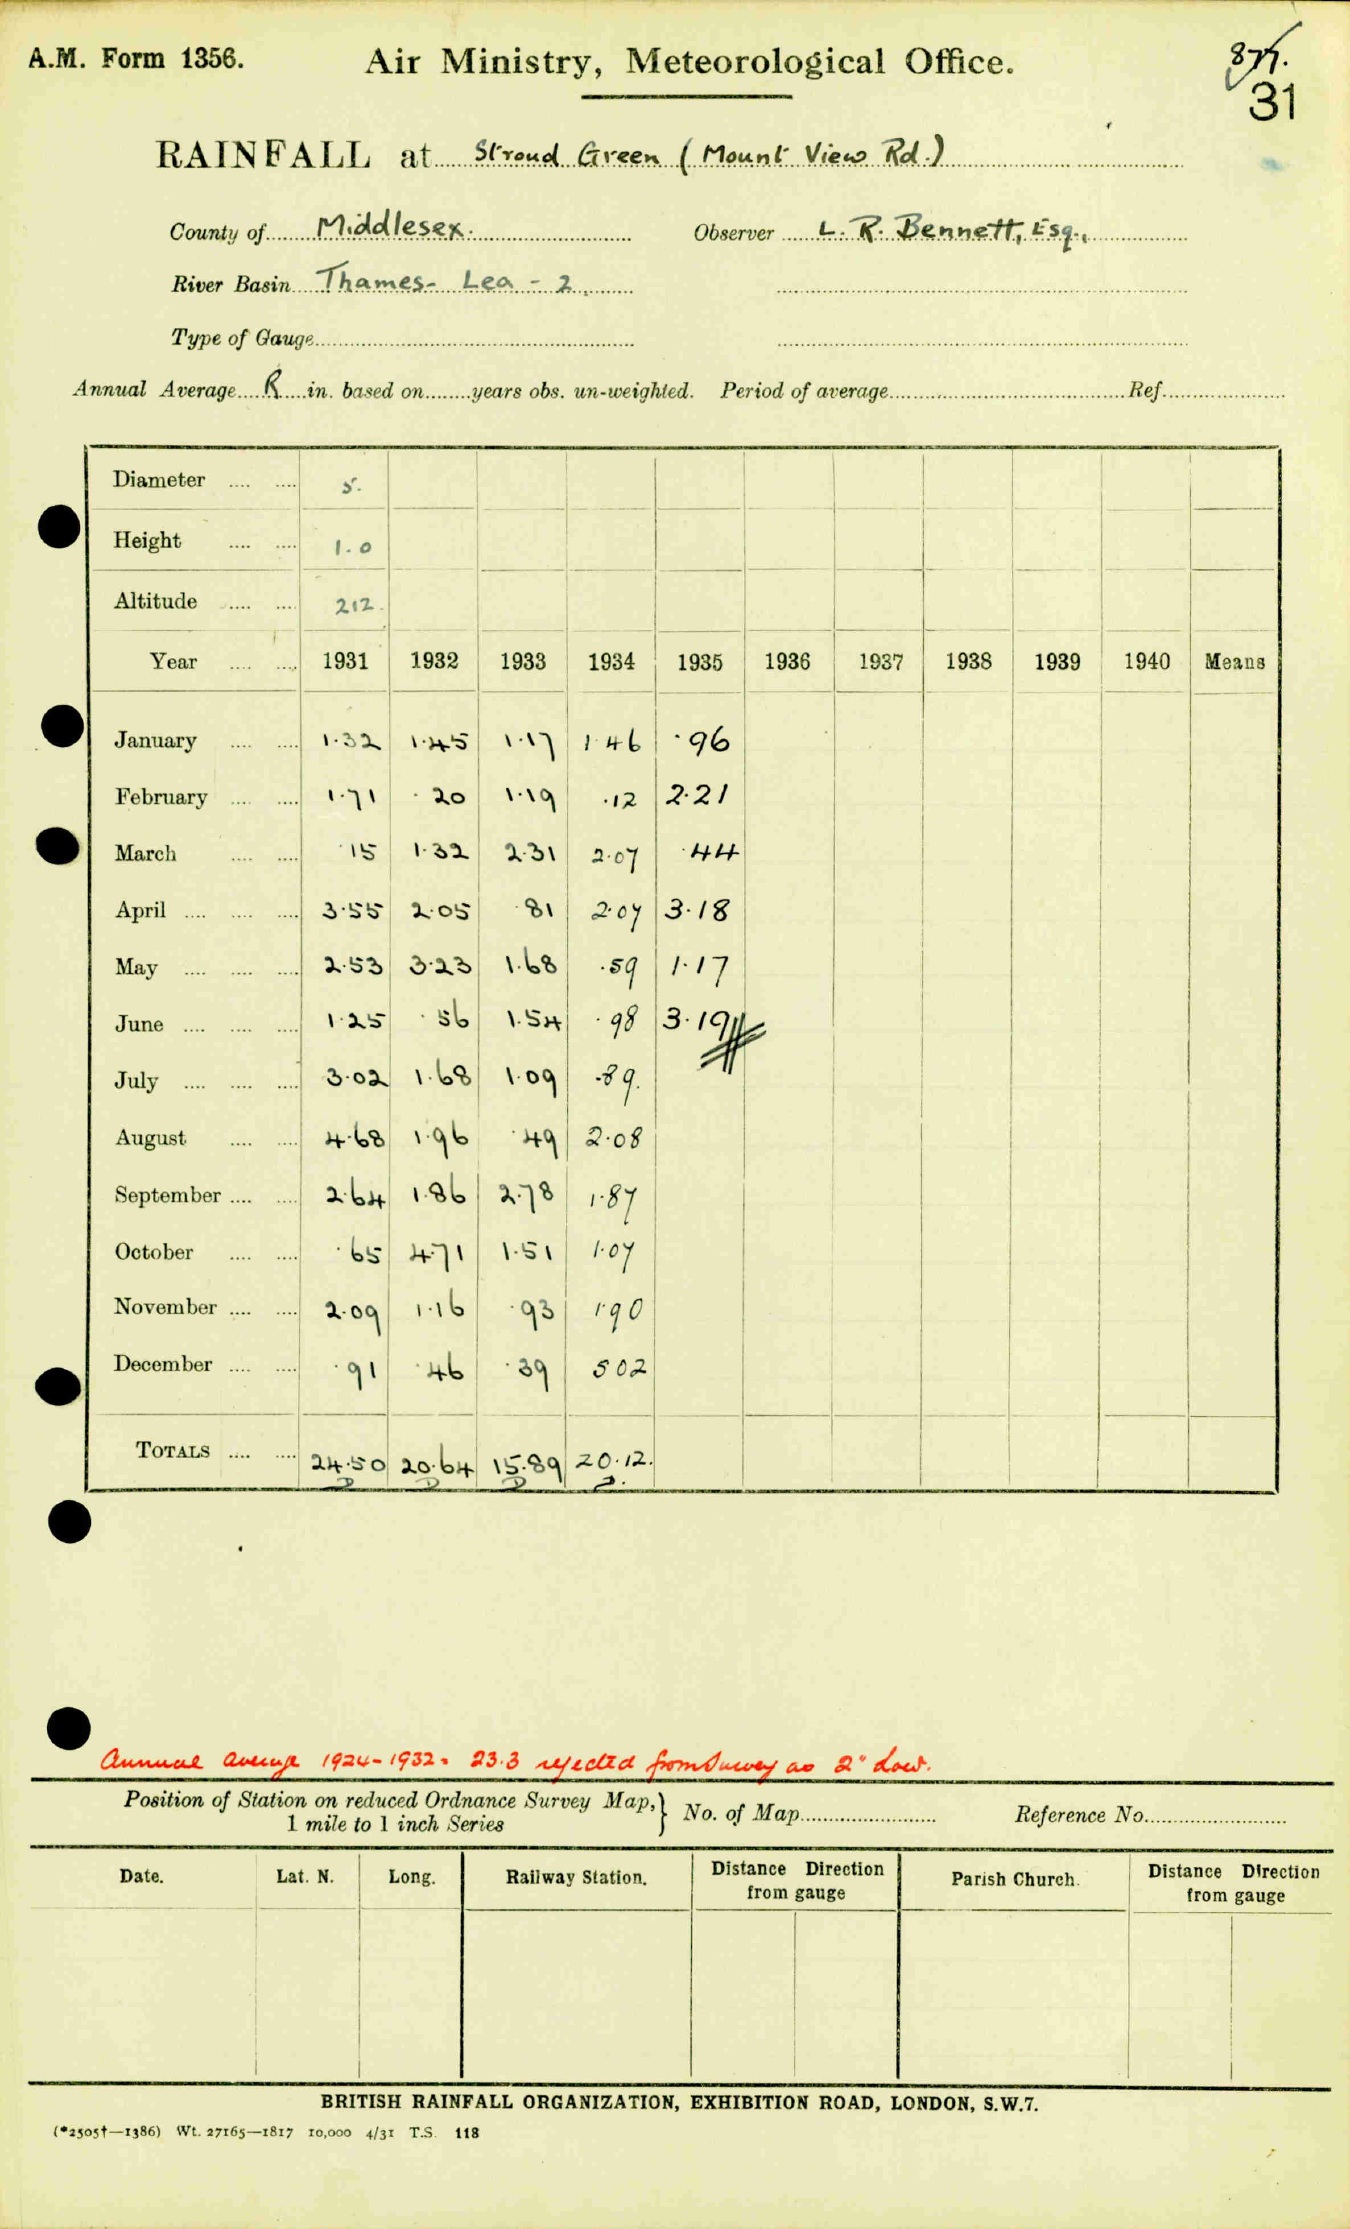 A.M. Form 1356.
Air Ministry, Meteorological Office.
31
RAINFALL at Stroud Green (Mount View Rd.)
County of Middlesex. Observer L. R. Bennett, Esq.,
River Basin Thames- Lea - 2.
Type of Gauge
Annual Average R in. based on years obs. un-weighted. Period of average Ref.
Diameter 5.
Height 1.0
Altitude 212.
Year 1931 1932 1933 1934 1935 1936 1937 1938 1939 1940 Means
January 1.32 1.45 1.17 1.46 .96
February 1.71 .20 1.19 .12 2.21
March .15 1.32 2.31 2.07 .44
April 3.55 2.05 .81 2.07 3.18
May 2.53 3.23 1.68 .59 1.17
June 1.25 .56 1.54 .98 3.19
July 3.02 1.68 1.09 .89.
August 4.68 1.96 .49 2.08
September 2.64 1.86 2.78 1.87
October .65 4.71 1.51 1.07
November 2.09 1.16 .93 1.90
December .91 .46 .39 5 02
TOTALS 24.50 20.64 15.89 20.12.
D D D D.
Annual average 1924-1932 = 23.3 rejected from Survey as 2" low.
Position of Station on reduced Ordnance Survey Map,} No. of Map Reference No.
1 mile to 1 inch Series
Date. Lat. N. Long. Railway Station. Distance Direction from gauge Parish Church. Distance Direction from gauge
BRITISH RAINFALL ORGANIZATION, EXHIBITION ROAD, LONDON, S.W.7.
(*2505†—1386) Wt. 27165—1817 10,000 4/31 T.S. 118